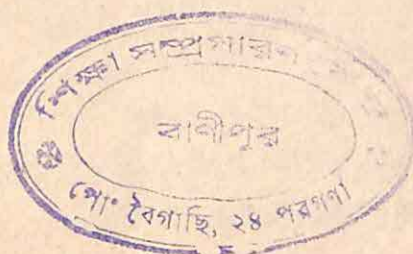 শিক্ষা সম্প্রসারণ
বাণীপুর
পোঃ বৈগাছি, ২৪ পরগণা